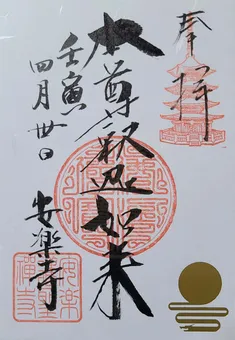 奉拝
本尊釈迦如来
壬寅
四月廿日
安楽寺